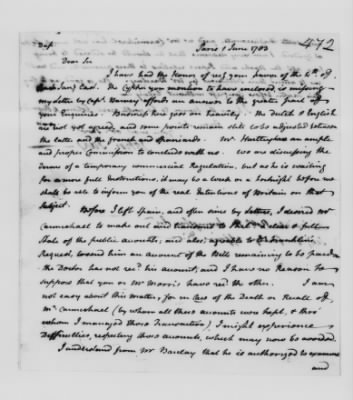 412
Dup. Paris 1 June 1783
Dear Sir
I have had the Honor of rec.g your favor of the 4th. of
last. The Cypher you mention to have enclosed is missing
my Letter by Capt. Barney affords an answer to the greater part of
your Enquiries. Business here goes on heavily. The Dutch & English
are not yet agreed, and some points remain still to be adjusted between
the latter and the french and Spaniards. Mr Hartley has an ample
and proper Commission to conclude with us. We are discussing the
Terms of a temporary commercial Regulation, but as he is waiting
for a more full Instructions, it may be a week or a fortnight before we
shall be able to inform you of the real Intentions of Britain on that
Subject.
Before I left Spain, and often since by Letters, I desired Mr
Carmichael to make out and transmit to Philadelphia a full
State of the public accounts; and also, agreable to
Request, to send him an account of the Bills remaining to be paid.
The Doctor has not recd. his account, and I have no Reason to
suppose that you or Mr Morris have recd. the other. I am
not easy about this matter, for in Case of the Death or Recall of
Mr Carmichael (by whom all those accounts were kept, & thro'
whom I managed those Transactions) I might experience
Difficulties, respecting those accounts, which may now be avoided.
I understand from Mr Barclay that he is authorized to examine
and